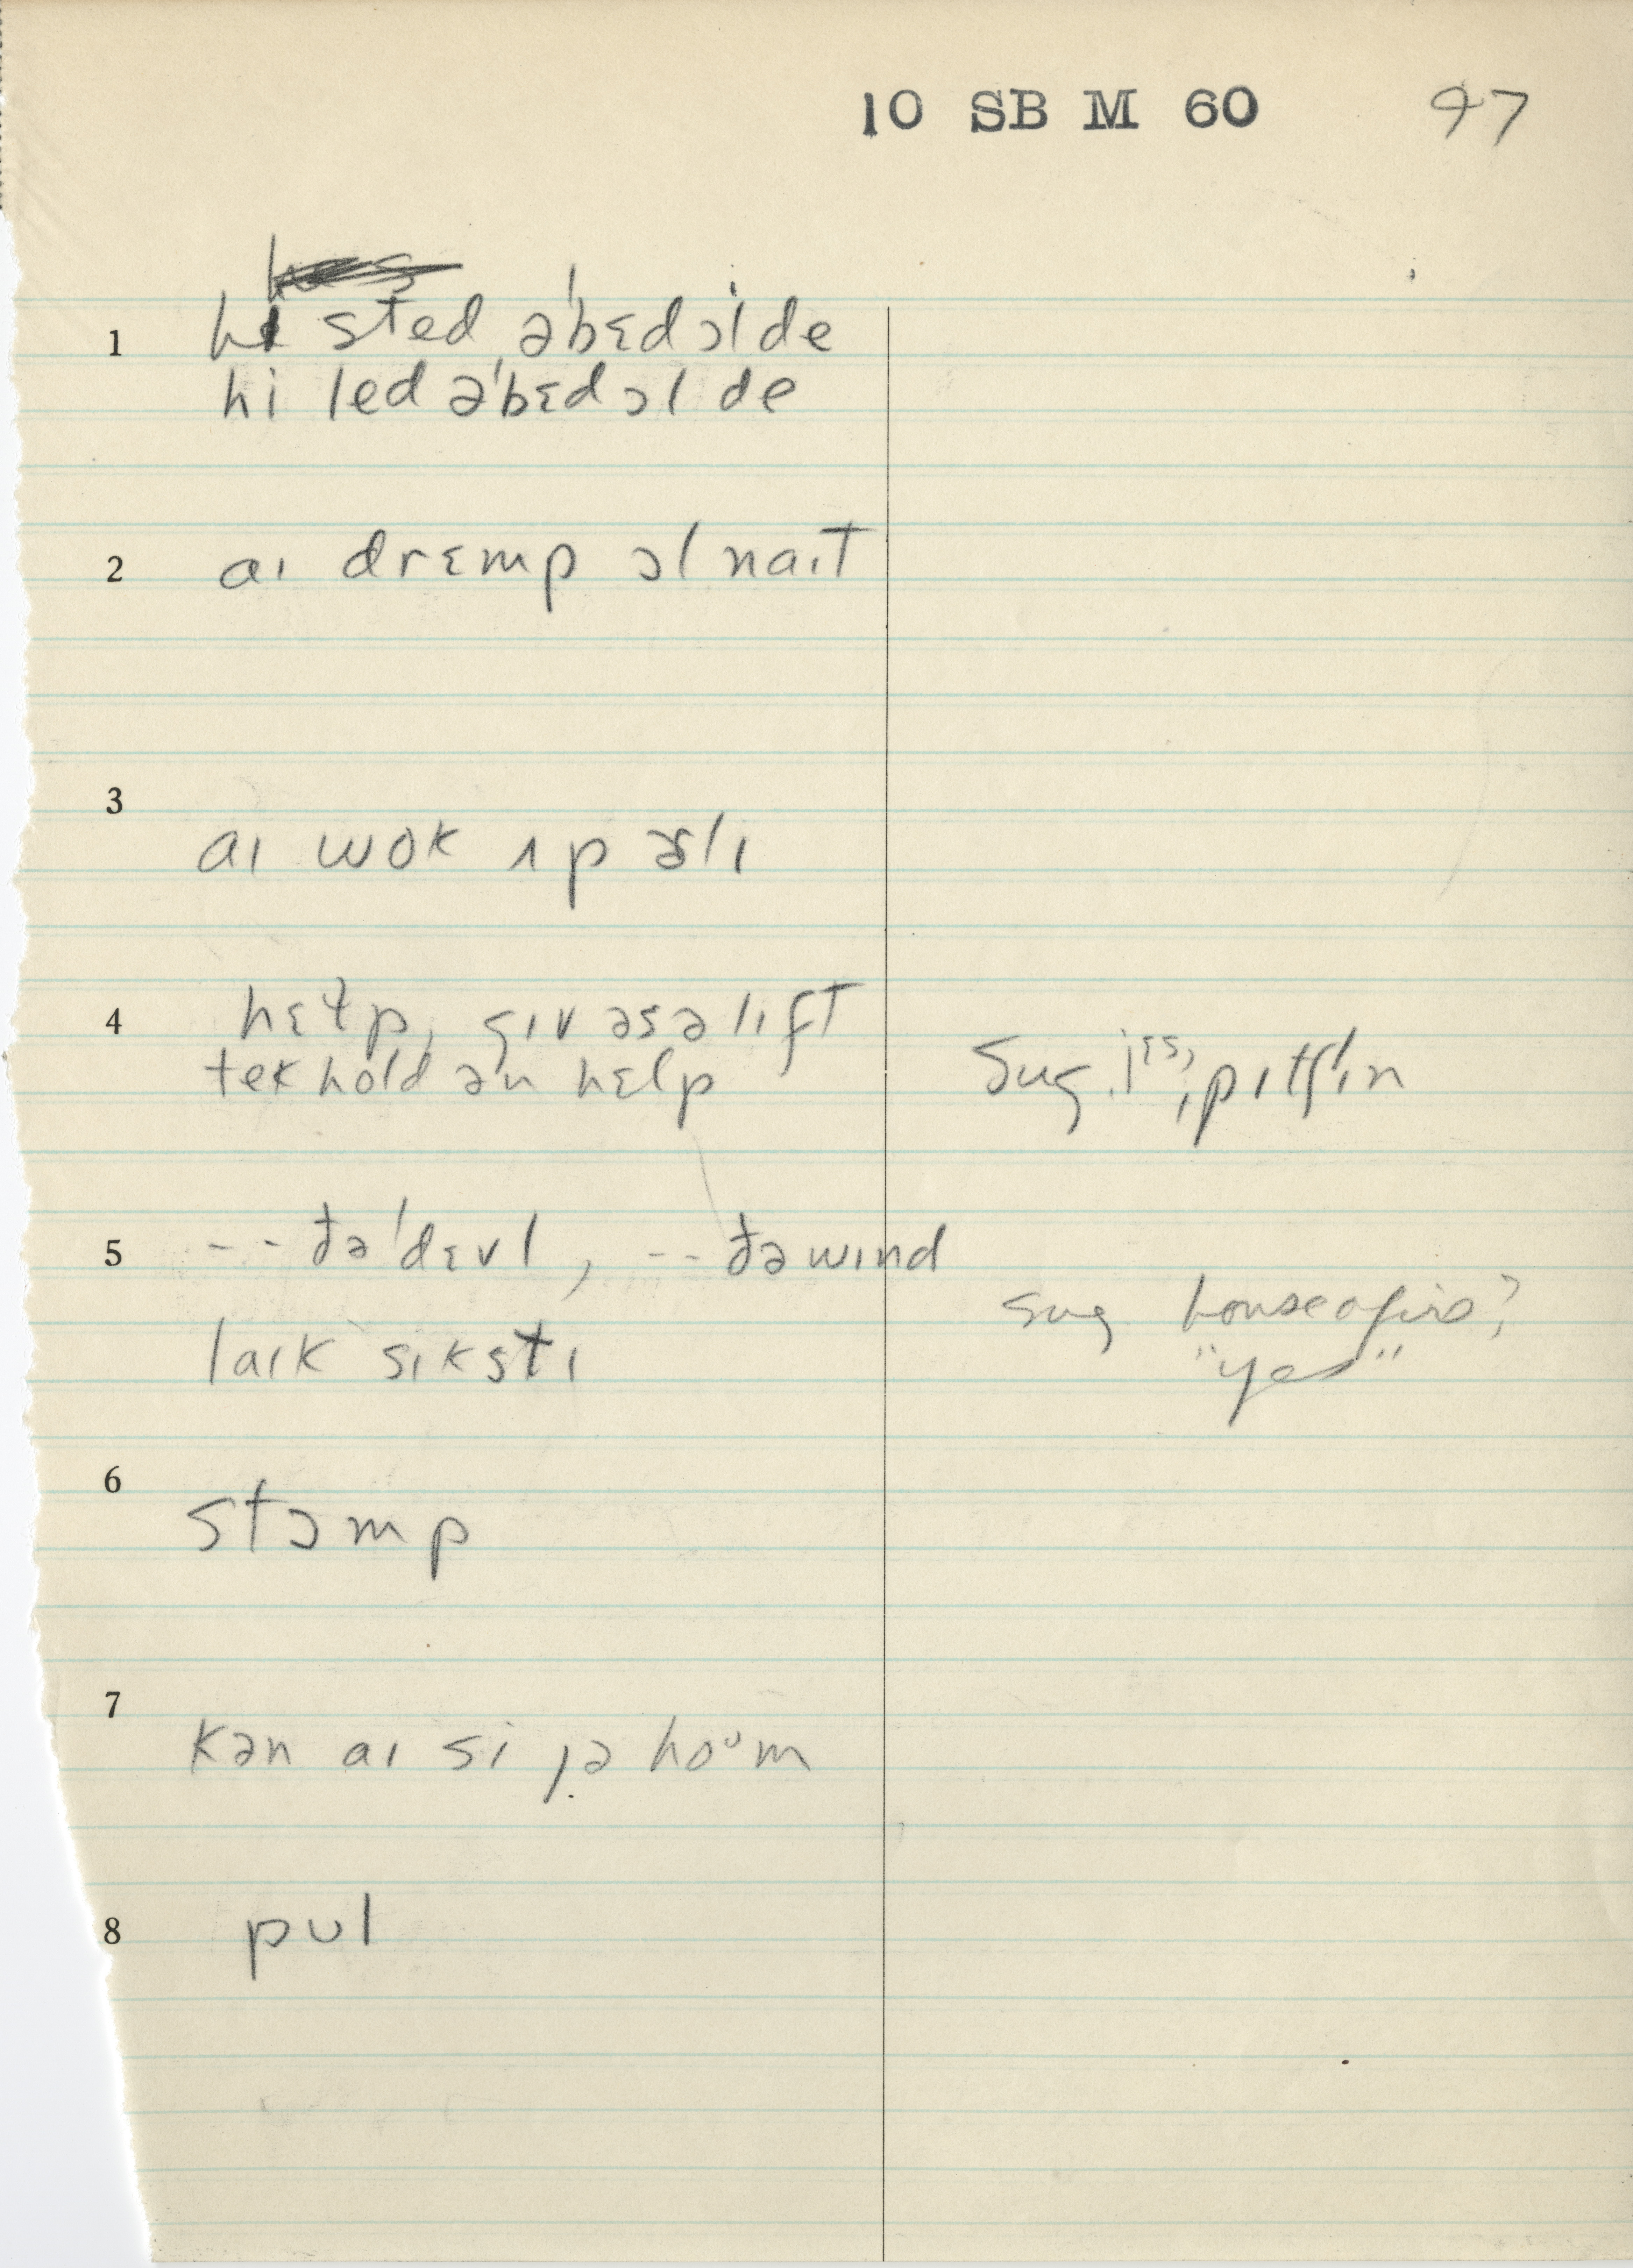 10 SB M 60 97
1 hi sted ə'bɛd ɔl de
hi led ə'bɛd ɔl de
2 aɪ drɛmp ɔl naɪt
3 aɪ wok ʌp ɚlɪ
4 hɛɫp, gɪv əs ə lɪft
tek hold ən hɛlp Sug. jɛs, pɪtʃ ɪn
5 -- ðə 'dɛvl, -- ðə wɪnd
laɪk sɪkstɪ
sug house afire?
"yes"
6 stɔmp
7 kən aɪ si jə hoᴜm
8 pʊl